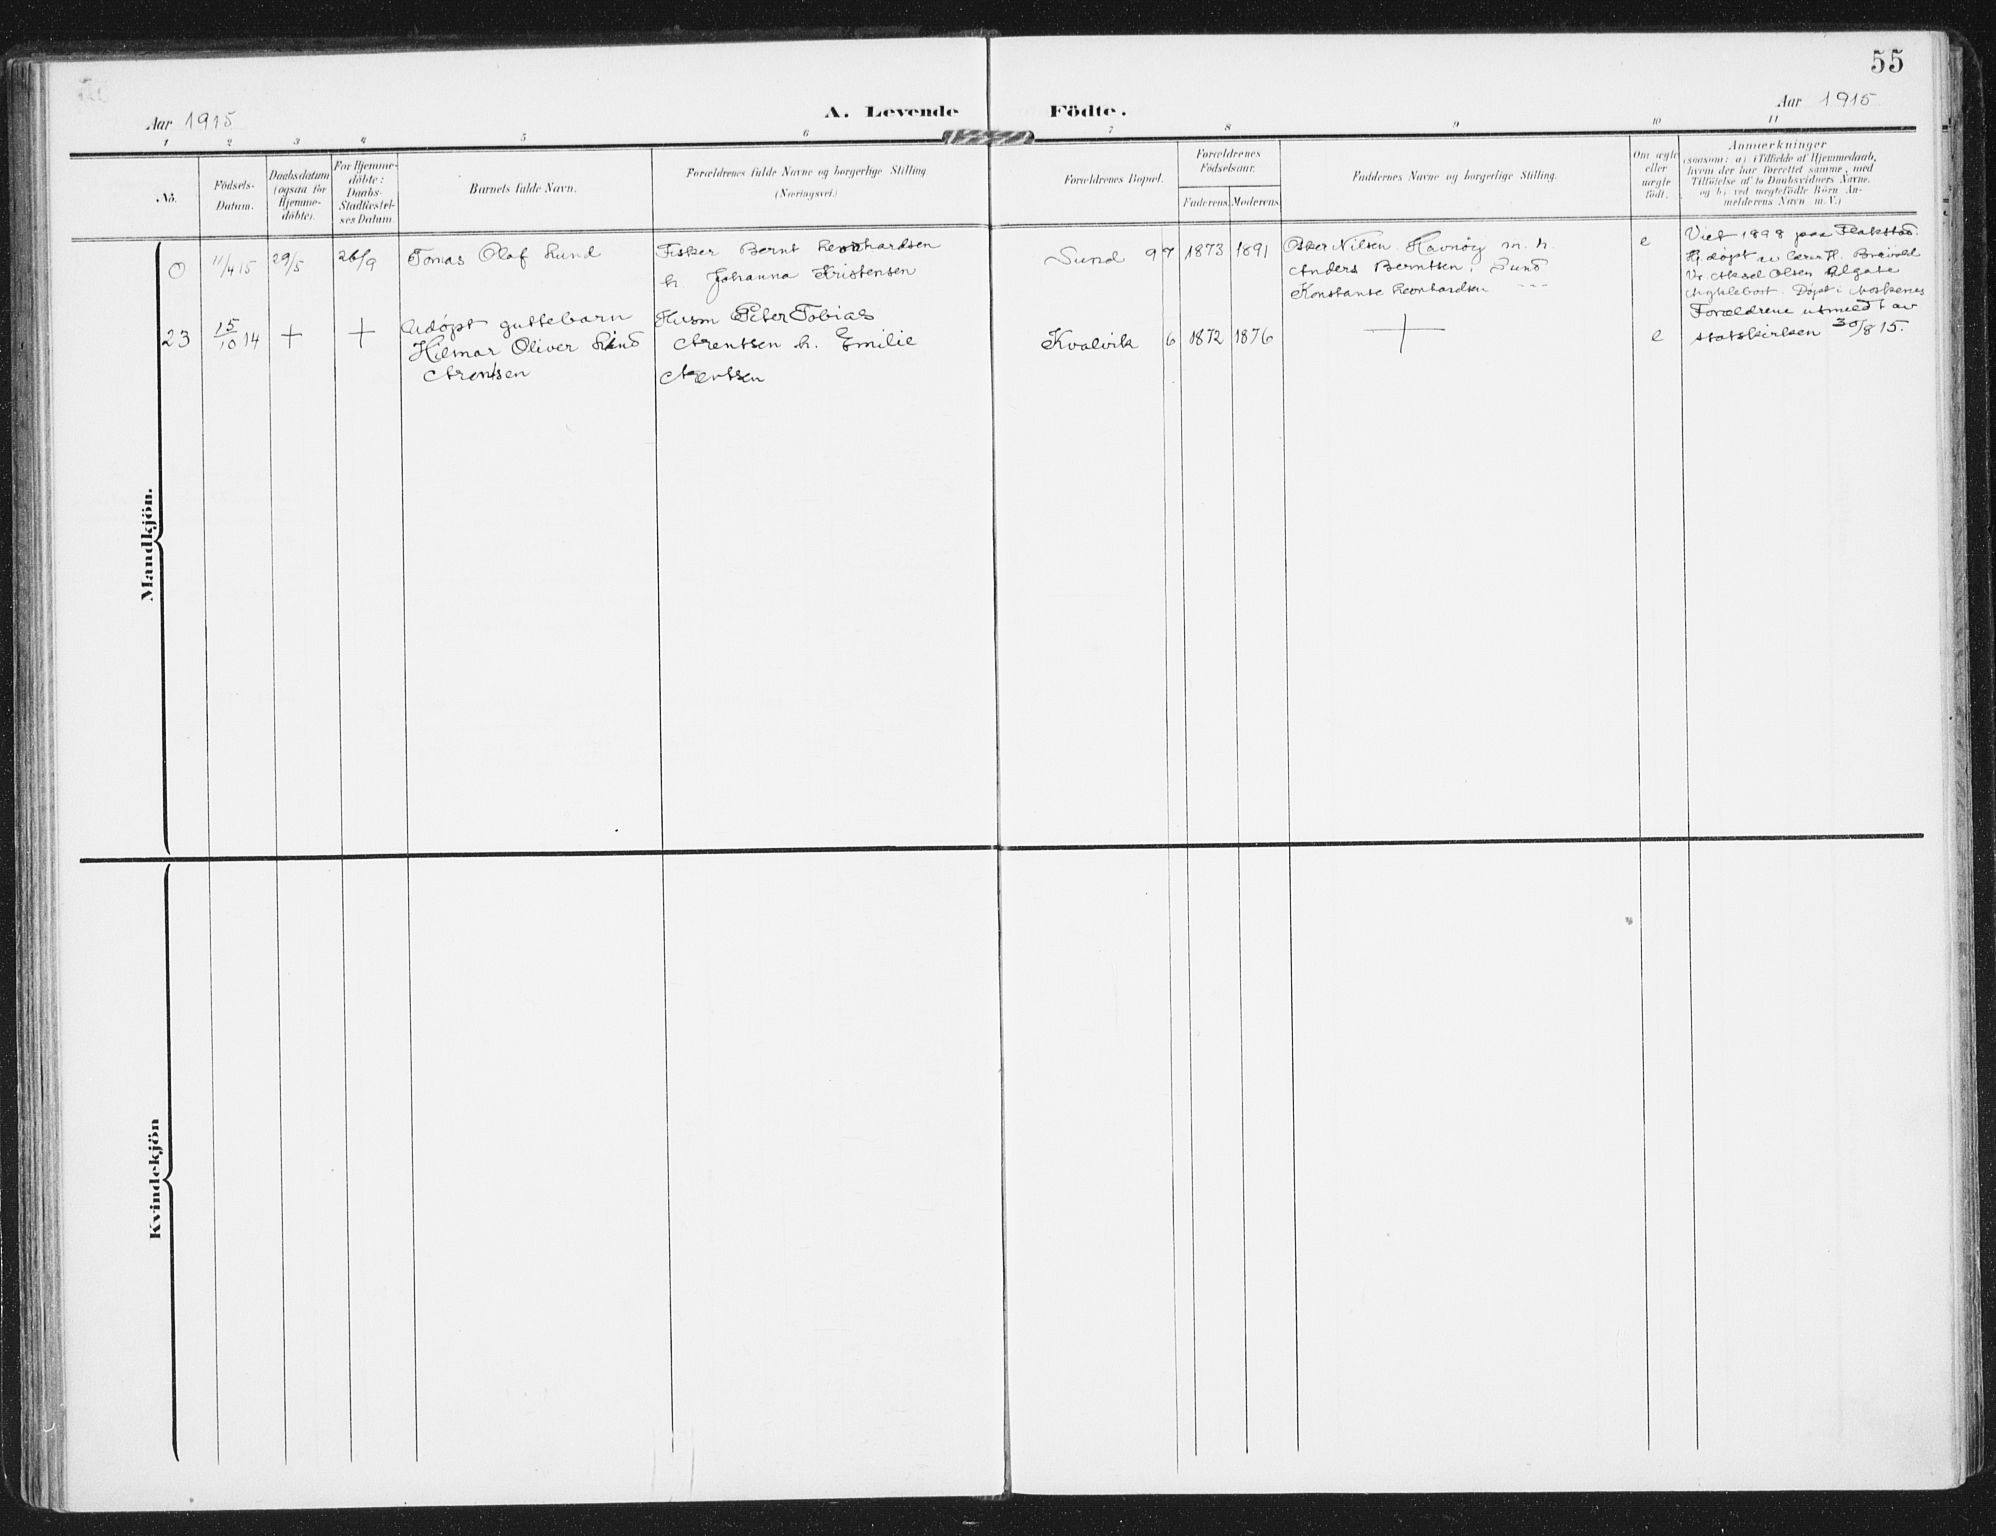 55
Aar 1915
A. Levende Födte.
Aar 1915
1 2 3 4 5 6 7 8 9 10 11
No.
Födsels-
Datum.
Daabsdatum
(ogsaa for
Hjemme-
döbte).
For Hjemme-
döbte:
Daabs-
Stadfæstel-
ses Datum
Barnets fulde Navn.
Forældrenes fulde Navne og borgerlige Stilling
(Næringsvei.)
Forældrenes Bopæl.
Forældrenes
Födselsaar.
Faderens Moderens
Faddernes Navne og borgerlige Stilling.
Om ægte
eller
uægte
födt.
Anmærkninger
(saasom: a) i Tilfælde af Hjemmedaab,
hvem der har forrettet samme, med
Tilföielse af to Daabsvidners Navne.
og b) ved uægtefödte Börn An-
melderens Navn m. V.)
Mandkjön.
0
11/4 15
29/5
26/9
Tomas Olaf Lund
Fisker Bernt Leonhardsen
h. Johanna Kristensen
Sund 97
1873 1891
Asker Nilsen. Havnøy m. h.
Anders Berntsen. Sund
Konstanse Leonhardsen - - -
e
Viet 1898 paa Flakstad.
Hj. døpt av lærer H. Breivold
Vr Aksel Olsen Algate
Myklebost. Døpt i Moskenes
23
15/10 14
+
+
Udøpt guttebarn
Hilmar Oliver Lind
Arentsen
Husm Peter Tobias
Arentsen h. Emilie
Arentsen
Kvalvik 6
1872 1876
+
e
Forældrene utmeldt av
statskirken 30/8 15.
Kvindekjön